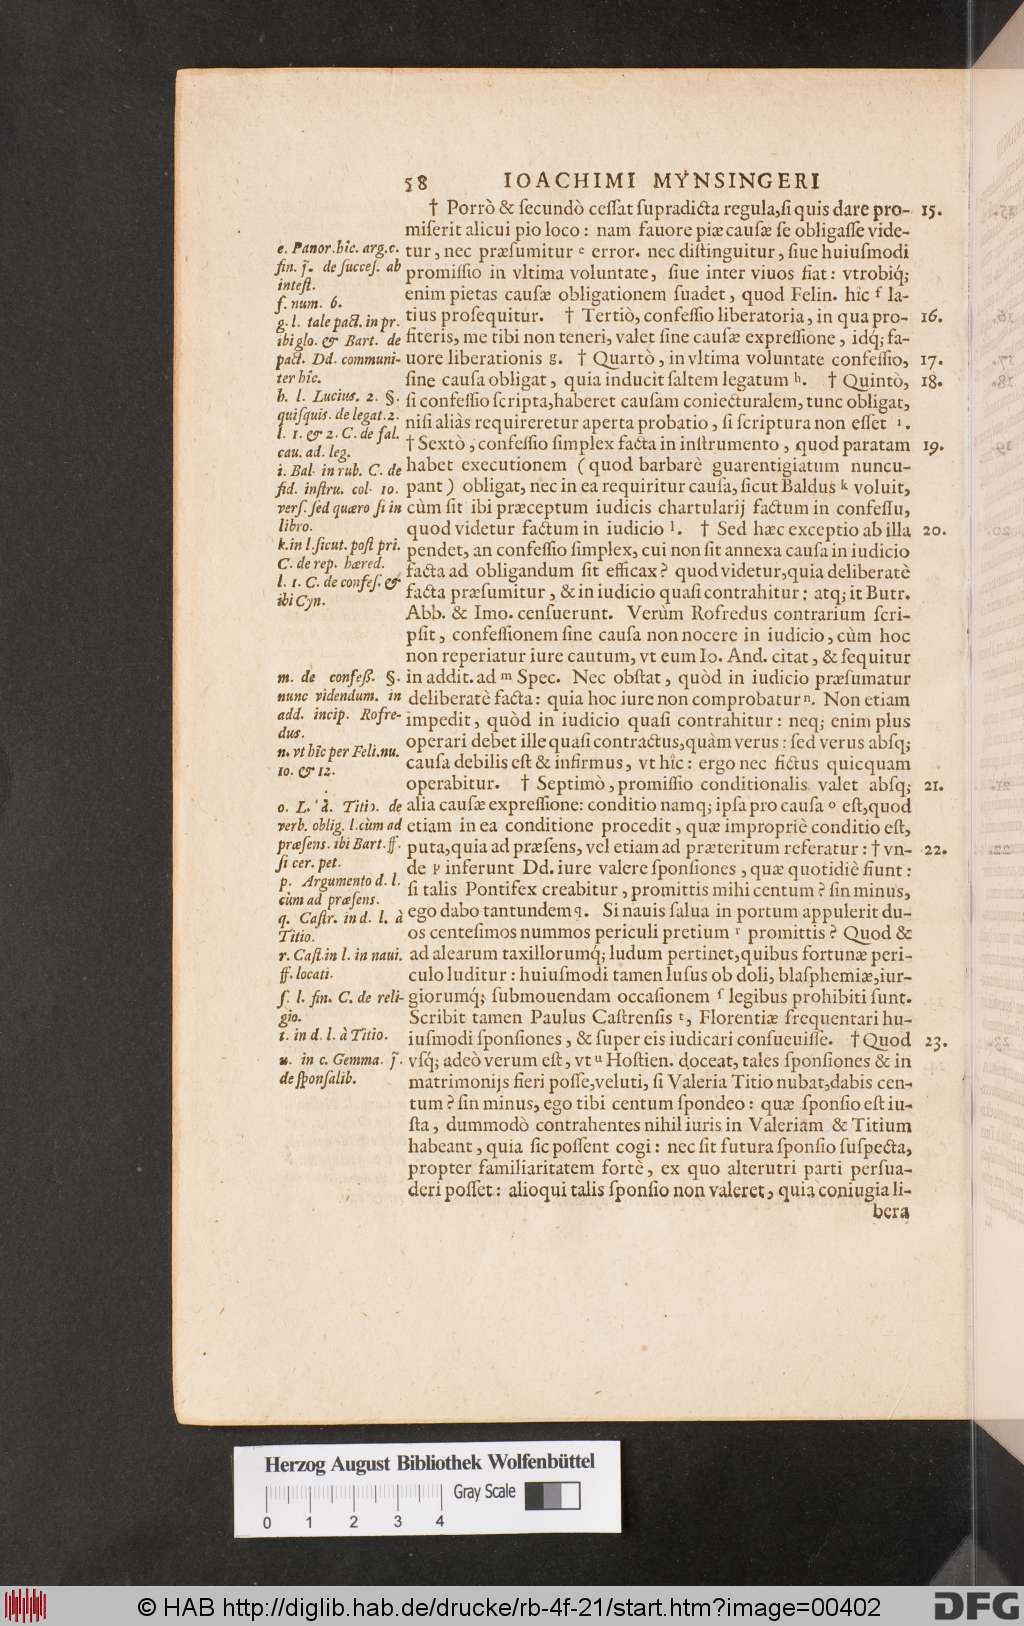 58 IOACHIMI MYNSINGERI
† Porrò & ſecundò ceſſat ſupradicta regula, ſi quis dare pro- 15.
miſerit alicui pio loco: nam fauore piæ cauſæ ſe obligaſſe vide-
tur, nec præſumitur e error. nec diſtinguitur, ſiue huiuſmodi
promiſſio in vltima voluntate, ſiue inter viuos fiat: vtrobiq́;
enim pietas cauſæ obligationem ſuadet, quod Felin. hîc f la-
tius proſequitur. † Tertiò, confeſſio liberatoria, in qua pro- 16.
fiteris, me tibi non teneri, valet ſine cauſæ expreſſione, idq́; fa-
uore liberationis g. † Quartò, in vltima voluntate confeſſio, 17.
ſine cauſa obligat, quia inducit ſaltem legatum h. † Quintò, 18.
ſi confeſſio ſcripta, haberet cauſam coniecturalem, tunc obligat,
niſi aliàs requireretur aperta probatio, ſi ſcriptura non eſſet i.
† Sextò, confeſſio ſimplex facta in inſtrumento, quod paratam 19.
habet executionem (quod barbarè guarentigiatum nuncu-
pant) obligat, nec in ea requiritur cauſa, ſicut Baldus k voluit,
cùm ſit ibi præceptum iudicis chartularij factum in confeſſu,
quod videtur factum in iudicio l. † Sed hæc exceptio ab illa 20.
pendet, an confeſſio ſimplex, cui non ſit annexa cauſa in iudicio
facta ad obligandum ſit efficax? quod videtur, quia deliberatè
facta præſumitur, & in iudicio quaſi contrahitur: atq; it Butr.
Abb. & Imo. cenſuerunt. Verùm Rofredus contrarium ſcri-
pſit, confeſſionem ſine cauſa non nocere in iudicio, cùm hoc
non reperiatur iure cautum, vt eum Io. And. citat, & ſequitur
in addit. ad m Spec. Nec obſtat, quòd in iudicio præſumatur
deliberatè facta: quia hoc iure non comprobatur n. Non etiam
impedit, quòd in iudicio quaſi contrahitur: neq; enim plus
operari debet ille quaſi contractus, quàm verus: ſed verus abſq;
cauſa debilis eſt & infirmus, vt hîc: ergo nec fictus quicquam
operabitur. † Septimò, promiſſio conditionalis valet abſq; 21.
alia cauſæ expreſſione: conditio namq; ipſa pro cauſa o eſt, quod
etiam in ea conditione procedit, quæ impropriè conditio eſt,
puta, quia ad præſens, vel etiam ad præteritum referatur: † vn- 22.
de p inferunt Dd. iure valere ſponſiones, quæ quotidiè fiunt:
ſi talis Pontifex creabitur, promittis mihi centum? ſin minus,
ego dabo tantundem q. Si nauis ſalua in portum appulerit du-
os centeſimos nummos periculi pretium r promittis? Quod &
ad alearum taxillorumq́; ludum pertinet, quibus fortunæ peri-
culo luditur: huiuſmodi tamen luſus ob doli, blaſphemiæ, iur-
giorumq́; ſubmouendam occaſionem ſ legibus prohibiti ſunt.
Scribit tamen Paulus Caſtrenſis t, Florentiæ frequentari hu-
iuſmodi ſponſiones, & ſuper eis iudicari conſueuiſſe. † Quod 23.
vſq; adeò verum eſt, vt u Hoſtien. doceat, tales ſponſiones & in
matrimonijs fieri poſſe, veluti, ſi Valeria Titio nubat, dabis cen-
tum? ſin minus, ego tibi centum ſpondeo: quæ ſponſio eſt iu-
ſta, dummodò contrahentes nihil iuris in Valeriam & Titium
habeant, quia ſic poſſent cogi: nec ſit futura ſponſio ſuſpecta,
propter familiaritatem fortè, ex quo alterutri parti perſua-
deri poſſet: alioqui talis ſponſio non valeret, quia coniugia li-
bera
e. Panor. hîc. arg. c.
fin. j̃. de ſucceſ. ab
inteſt.
f. num. 6.
g. l. tale pact. in pr.
ibi glo. & Bart. de
pact. Dd. communi-
ter hîc.
h. l. Lucius. 2. §.
quiſquis. de legat. 2.
l. 1. & 2. C. de fal.
cau. ad. leg.
i. Bal. in rub. C. de
fid. inſtru. col. 10.
verſ. ſed quæro ſi in
libro.
k. in l. ſicut. poſt pri.
C. de rep. hæred.
l. 1. C. de confeſ. &
ibi Cyn.
m. de confeß. §.
nunc videndum. in
add. incip. Rofre-
dus.
n. vt hîc per Feli. nu.
10. & 12.
o. L. à. Titio. de
verb. oblig. l. cùm ad
præſens. ibi Bart. ff.
ſi cer. pet.
p. Argumento d. l.
cùm ad præſens.
q. Caſtr. in d. l. à
Titio.
r. Caſt. in l. in naui.
ff. locati.
ſ. l. fin. C. de reli-
gio.
t. in d. l. à Titio.
u. in c. Gemma. j̃.
de ſponſalib.
Herzog August Bibliothek Wolfenbüttel
Gray Scale
0 1 2 3 4
© HAB http://diglib.hab.de/drucke/rb-4f-21/start.htm?image=00402
DFG